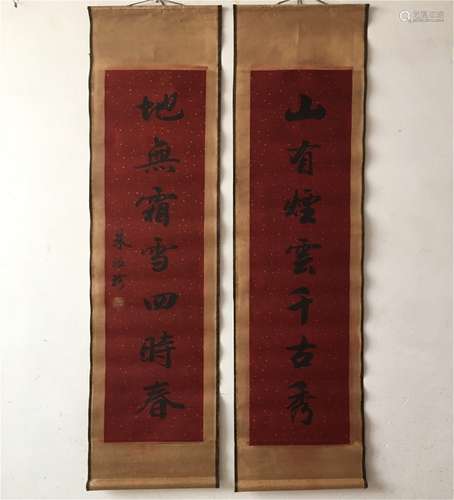 山有煙雲千古秀
地無霜雪四時春
朱汝珍